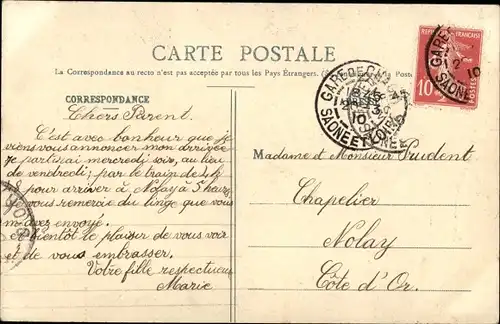 CARTE POSTALE
La Correspondance au recto n'est pas acceptée par tous les Pays Étrangers.
CORRESPONDANCE
Chers Parent.
C'est avec bonheur que je
viens vous annoncer mon arrivée
Je partirai mercredi soir, au lieu
de vendredi; par le train de 2h
pour arriver à Nolay à 5 heures
Je vous remercie du linge que vous
m'avez envoyé.
et bientôt le plaisir de vous voir
et de vous embrasser.
Votre fille respectueuse
Marie
RÉPUBLIQUE FRANÇAISE
10 c
POSTES
GARE DE
SAÔNE
12
10
GARE DE
SAÔNE ET LOIRE
10
Madame et Monsieur Prudent
Chapelier
Nolay
Côte d'Or.